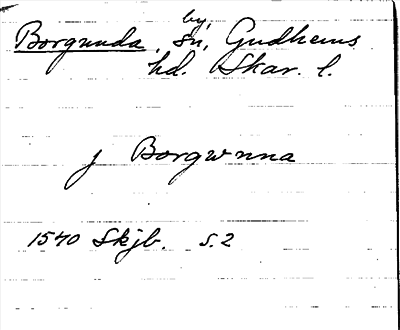 Borgunda, by, sn, Gudhems
hd. Skar. l.
j Borgwnna
1540 Skjb. S. 2